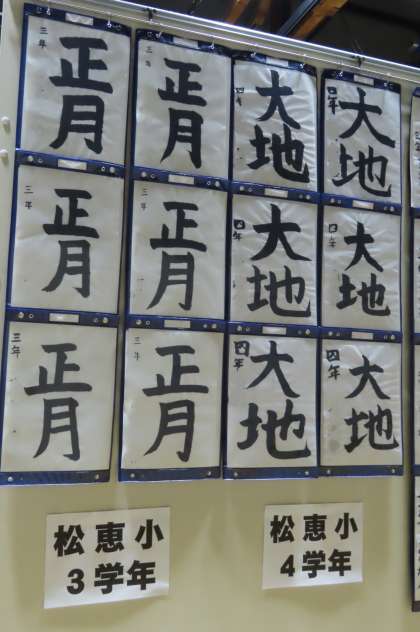 三年
正月
三年
正月
四年
大地
四年
大地
三年
正月
三年
正月
四年
大地
四年
大地
三年
正月
三年
正月
四年
大地
四年
大地
松恵小
3学年
松恵小
4学年